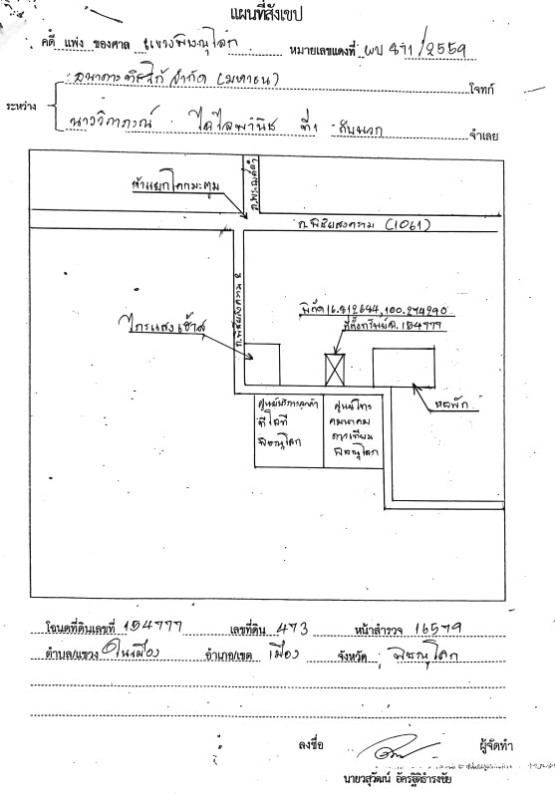 แผนที่สังเขป
คดี แพ่ง ของศาล แขวงพิษณุโลก หมายเลขแดงที่ ผบ 871/2559
ระหว่าง
ธนาคารทิสโก้ จำกัด (มหาชน) โจทก์
นางวิภาภรณ์ ที่1 กับพวก จำเลย
ห้าแยกโคกมะตูม
ถ.พระองค์ดำ
ถ.พิชัยสงคราม (1061)
ถ.พิชัยสงคราม
พิกัด 16.812644,100.274290
ที่ตั้งทรัพย์ ฉ.154777
หอพัก
ศูนย์บริการลูกค้า
ทีโอที
พิษณุโลก
ศูนย์โทร
คมนาคม
ดาวเทียม
พิษณุโลก
โฉนดที่ดินเลขที่ 154777 เลขที่ดิน 473 หน้าสำรวจ 16579
ตำบล/แขวง ในเมือง อำเภอ/เขต เมือง จังหวัด พิษณุโลก
ลงชื่อ ผู้จัดทำ
นายวสุวัฒน์ อัครฐิติธำรงชัย